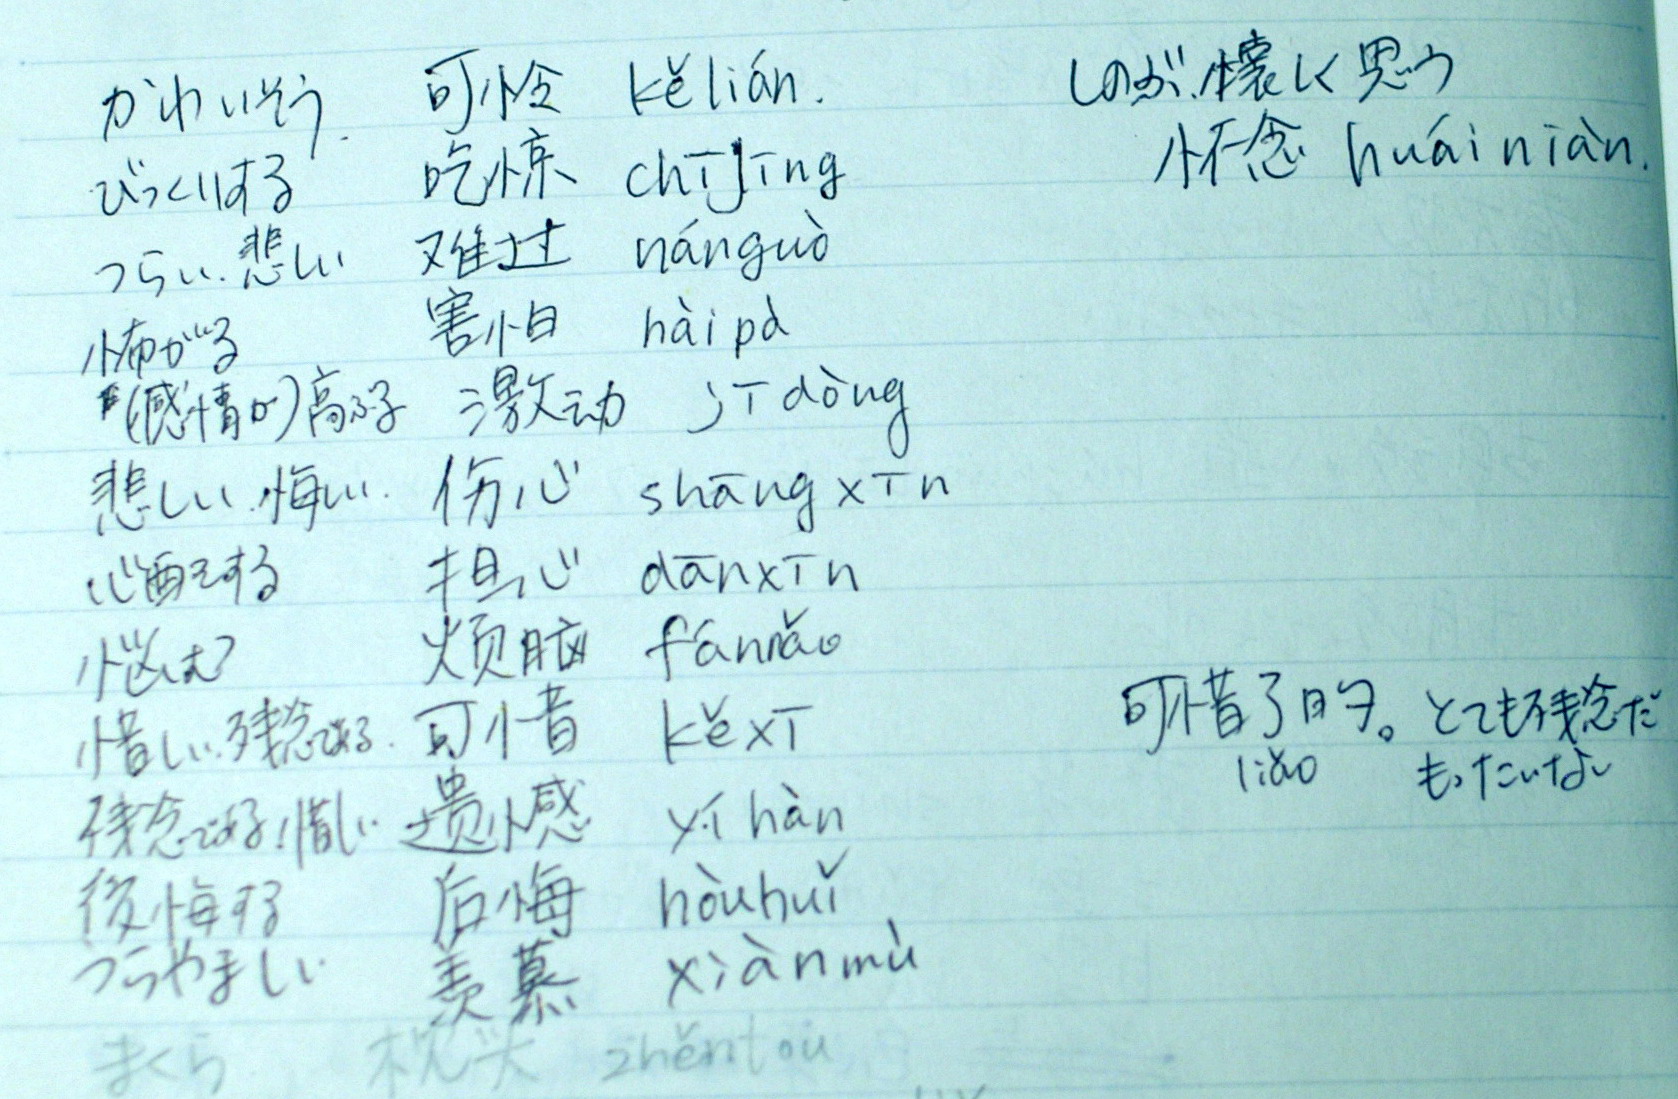 かわいそう. 可怜 kělián. しのぶ、懐しく思う
びっくりする 吃惊 chījīng 怀念 huáiniàn.
つらい.悲しい 难过 nánguò
怖がる 害怕 hàipà
(感情が)高ぶる 激动 jīdòng
悲しい.悔しい. 伤心 shāngxīn
心配をする 担心 dānxīn
悩む? 烦脑 fánnǎo
惜しい.残念である. 可惜 kěxī 可惜了的。とても残念だ
liǎo もったいない
残念である.惜しい 遗憾 yíhàn
後悔する 后悔 hòuhuǐ
うらやましい 羡慕 xiànmù
まくら 枕头 zhěntou